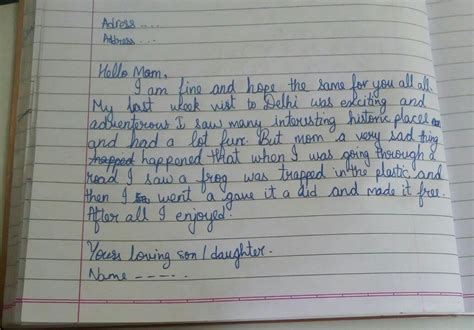 Adress ...
Address ...
Hello Mom,
I am fine and hope the same for you all all.
My last week vist to Delhi was exciting and
adventerous I saw many interisting historic places
and had a lot fun. But mom a very sad thing
happened that when I was going through a
road I saw a frog was trapped in the plastic and
then I went a gave it a aid and made it free.
After all I enjoyed.
Yours loving son/daughter.
Name -----